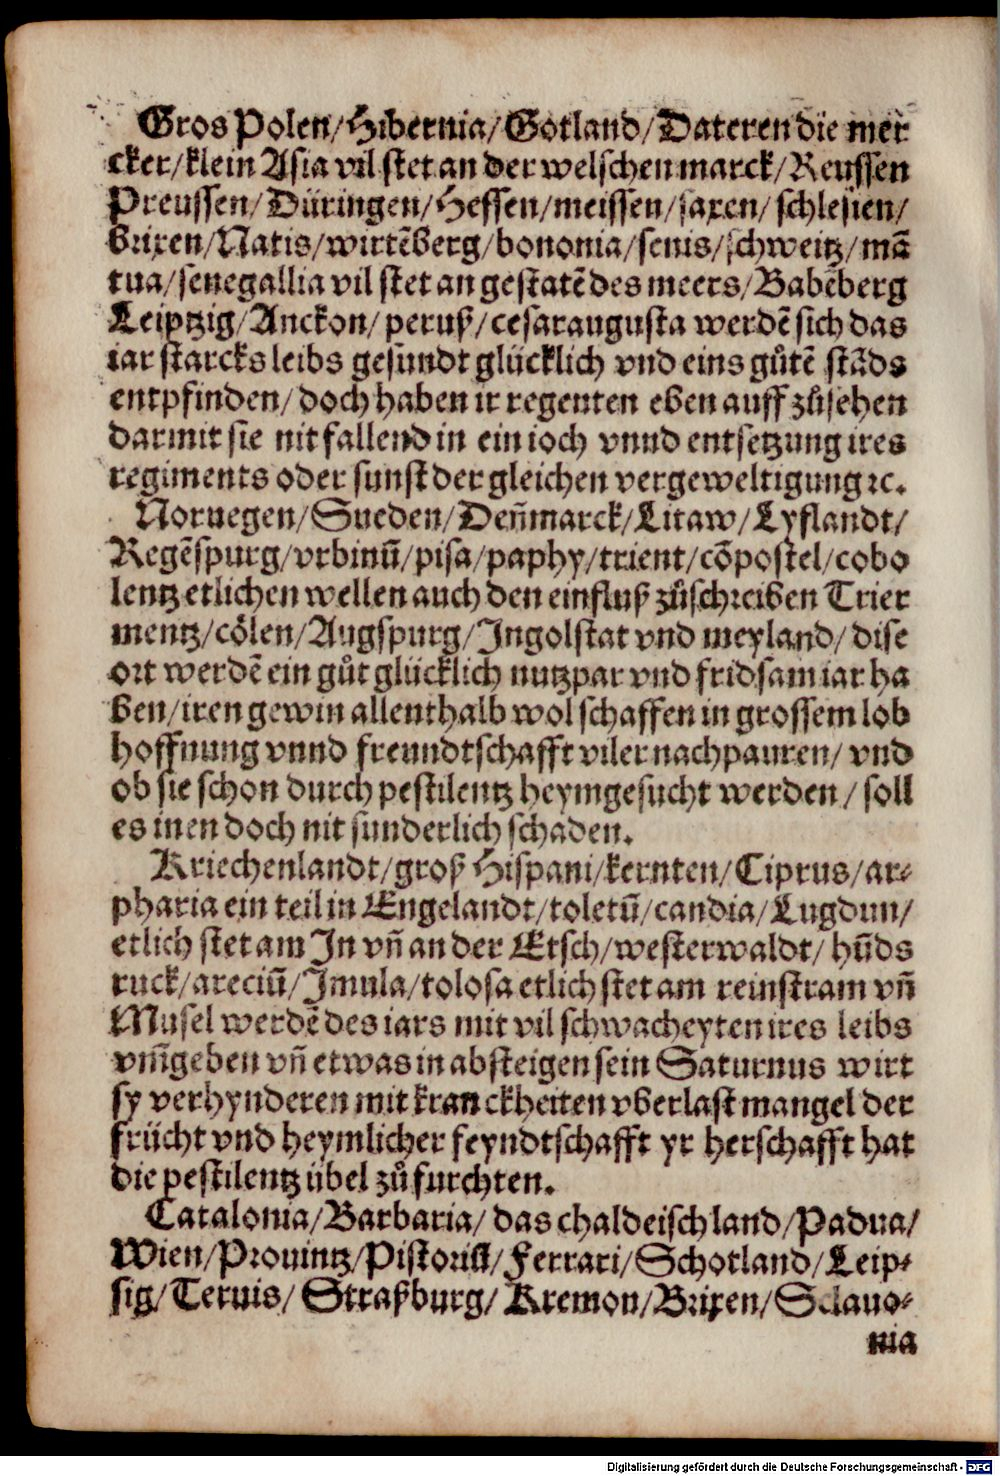 Gros Polen/Hibernia/Gotland/Dateren die mer
cker/klein Asia vil stet an der welschen marck/Reussen
Preussen/Düringen/Hessen/meissen/saxen/schlesien/
brixen/Natis/wirtēberg/bononia/senis/schweitz/mā
tua/senegallia vil stet an gestatē des meers/Babēberg
Leiptzig/Anckon/peruß/cesaraugusta werdē sich das
iar starcks leibs gesundt glücklich vnd eins gůtē stāds
entpfinden/doch haben ir regenten eben auff zůsehen
darmit sie nit fallend in ein ioch vnnd entsetzung ires
regiments oder sunst der gleichen vergeweltigung ꝛc.
Noruegen/Sueden/Deñmarck/Litaw/Lyflandt/
Regēspurg/vrbinū/pisa/paphy/trient/cōpostel/cobo
lentz etlichen wellen auch den einfluß zůschreiben Trier
mentz/cölen/Augspurg/Ingolstat vnd meyland/dise
ort werdē ein gůt glücklich nutzpar vnd fridsam iar ha
ben/iren gewin allenthalb wol schaffen in grossem lob
hoffnung vnnd freundtschafft viler nachpauren/vnd
ob sie schon durch pestilentz heymgesucht werden/soll
es inen doch nit sunderlich schaden.
Kriechenlandt/groß Hispani/kernten/Ciprus/ar-
pharia ein teil in Engelandt/toletū/candia/Lugdun/
etlich stet am In vñ an der Etsch/westerwaldt/hūds
ruck/areciū/Imula/tolosa etlich stet am reinstram vñ
Musel werdē des iars mit vil schwacheyten ires leibs
vm̄geben vñ etwas in absteigen sein Saturnus wirt
sy verhynderen mit kranckheiten vberlast mangel der
frücht vnd heymlicher feyndtschafft yr herschafft hat
die pestilentz übel zů furchten.
Catalonia/Barbaria/das chaldeisch land/Padua/
Wien/Prouintz/Pistorill/Ferrari/Schotland/Leip-
sig/Teruis/Straßburg/Kremon/Brixen/Sclauo-
nia
Digitalisierung gefördert durch die Deutsche Forschungsgemeinschaft - DFG